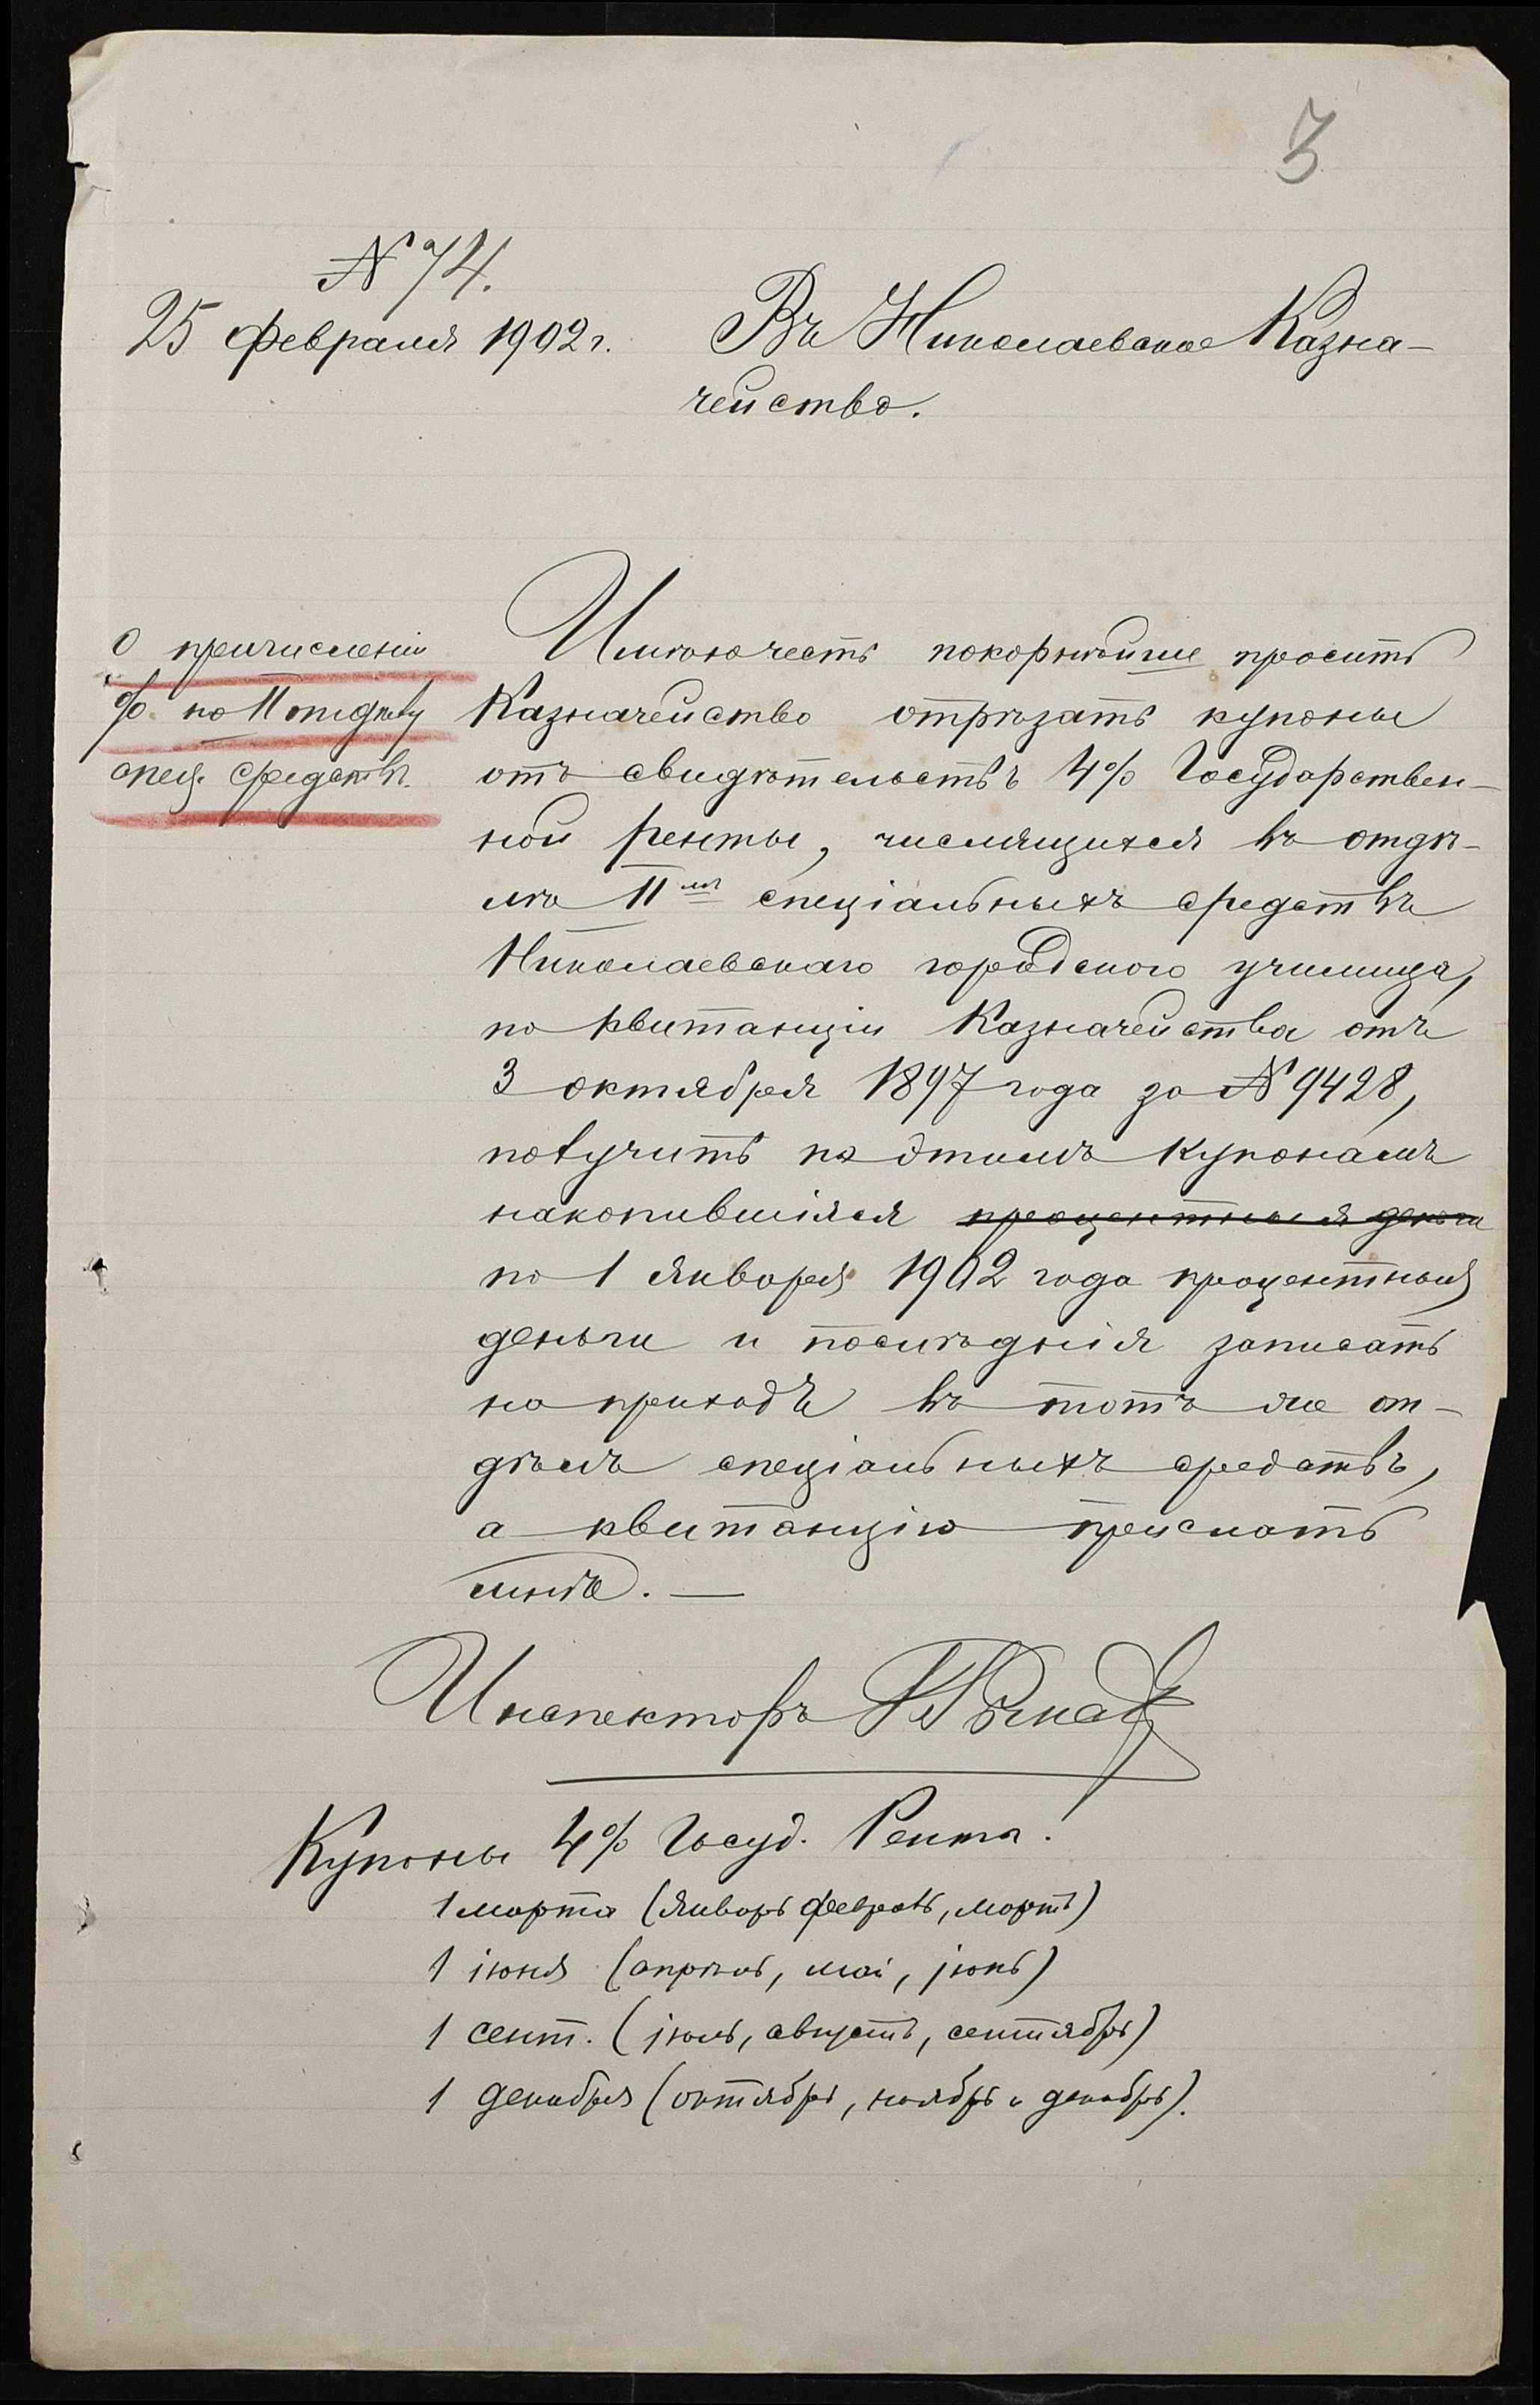 3
№ 74.
25 февраля 1902 г.
Въ Николаевское Казна-
чейство.
О причисленіи
% по II отдѣлу
спец. средствъ.
Имѣю честь покорнѣйше просить
Казначейство отрѣзать купоны
отъ свидѣтельствъ 4% Государствен-
ной ренты, числящихся въ отдѣ-
лѣ II мъ спеціальныхъ средствъ
Николаевскаго городского училища,
по квитанціи Казначейства отъ
3 октября 1897 года за № 9428,
получить по этимъ купонамъ
накопившіяся процентныя деньги
по 1 января 1902 года процентныя
деньги и послѣднія записать
на приходъ въ тотъ же от-
дѣлъ спеціальныхъ средствъ,
а квитанцію прислать
мнѣ. —
Инспекторъ
Купоны 4% Госуд. Рента.
1 марта (январь февраль, мартъ)
1 іюня (апрѣль, май, іюнь)
1 сент. (іюль, августъ, сентябрь)
1 декабря (октябрь, ноябрь и декабрь).